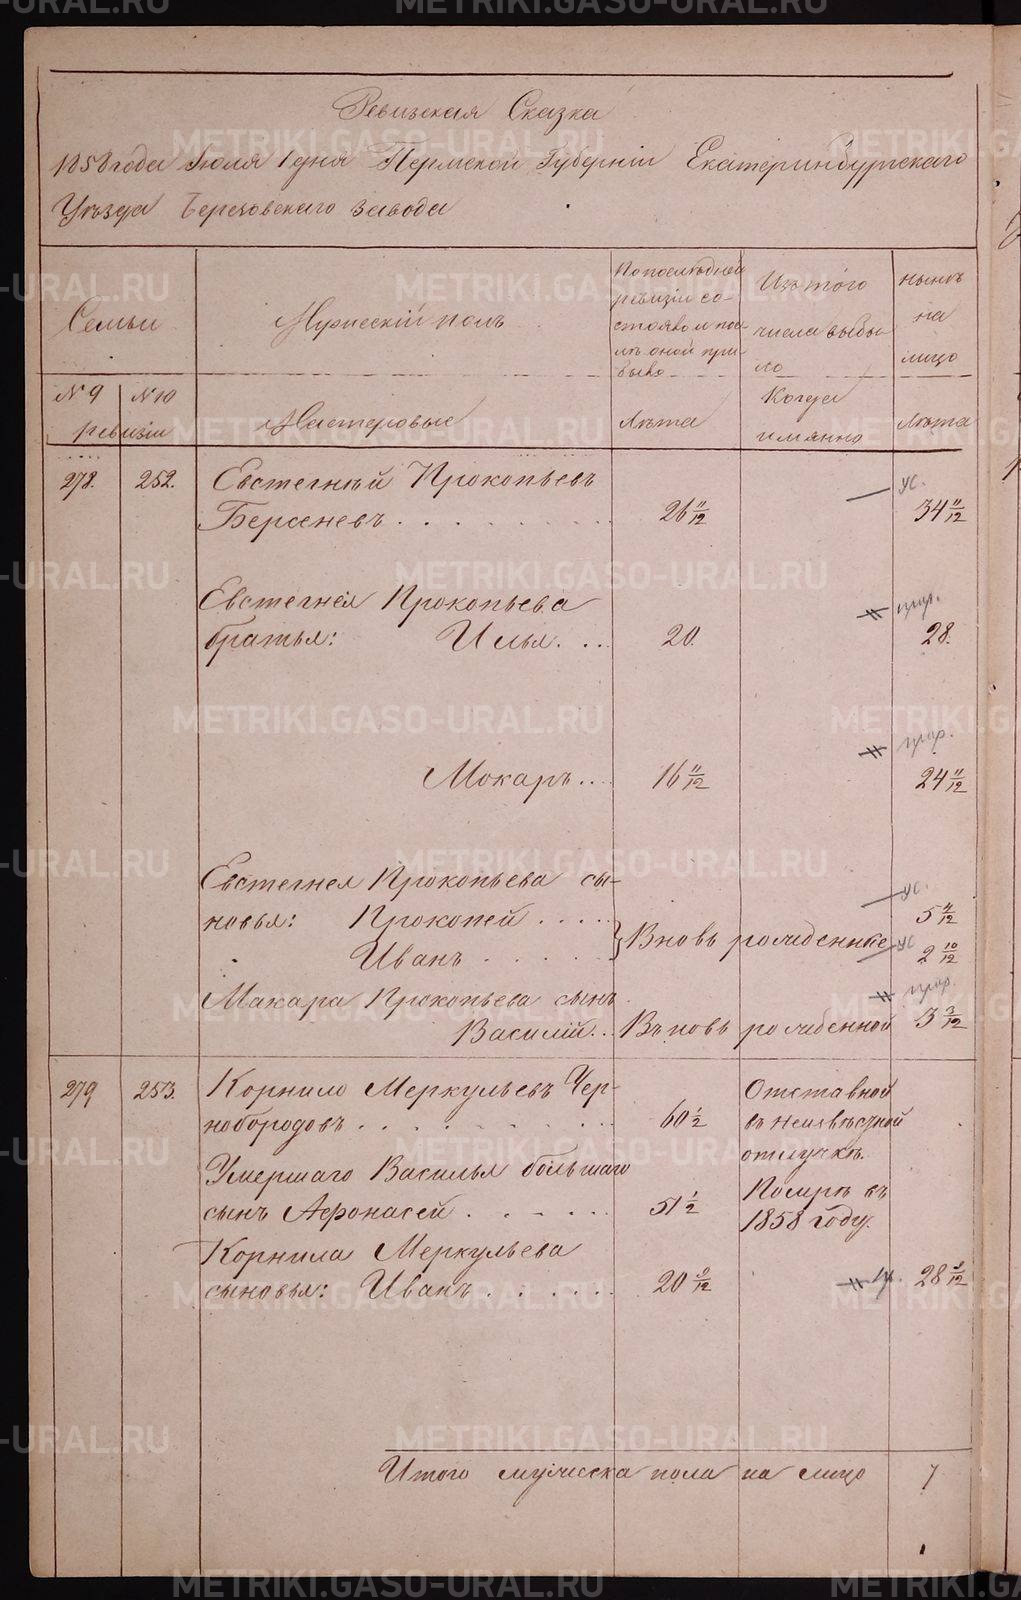 Ревизская Сказка
1858 года Июля 1 дня Пермской Губерніи Екатеринбургскаго
Уѣзда Березовскаго завода
Семьи
Мужескій полъ
По послѣдней
ревизіи со-
стояло и пос-
лѣ оной при-
было
Изъ того
числа выбы-
ло
нынѣ
на
лицо
№ 9 № 10
ревизіи
Мастеровые
Лѣта
Когда
имянно
Лѣта
278. 252. Евстегнѣй Прокопьевъ
ус.
Берсеневъ . . . . . . . 26 11/12 34 11/12
Евстегнея Прокопьева
братья: Илья. . . 20. 28.
Мокаръ . . . 16 11/12 24 11/12
Евстегнея Прокопьева сы-
ус.
новья: Прокопей . . . . 5 4/12
Вновь рожденные
ус
Иванъ . . . . . 2 10/12
Макара Прокопьева сынъ
Василій . . Въновь рожденной 3 3/12
279 253. Корнило Меркульевъ Чер-
нобородовъ . . . . . . . . 60 1/2
Отставной
въ неизвѣсной
отлучкѣ.
Умершаго Василья большаго
сынъ Афонасей . . . . . . 51 1/2
Помре въ
1858 году.
Корнила Меркульева
сыновья: Иванъ . . . . . . 20 9/12 28 9/12
Итого мужеска пола на лицо 7
METRIKI.GASO-URAL.RU